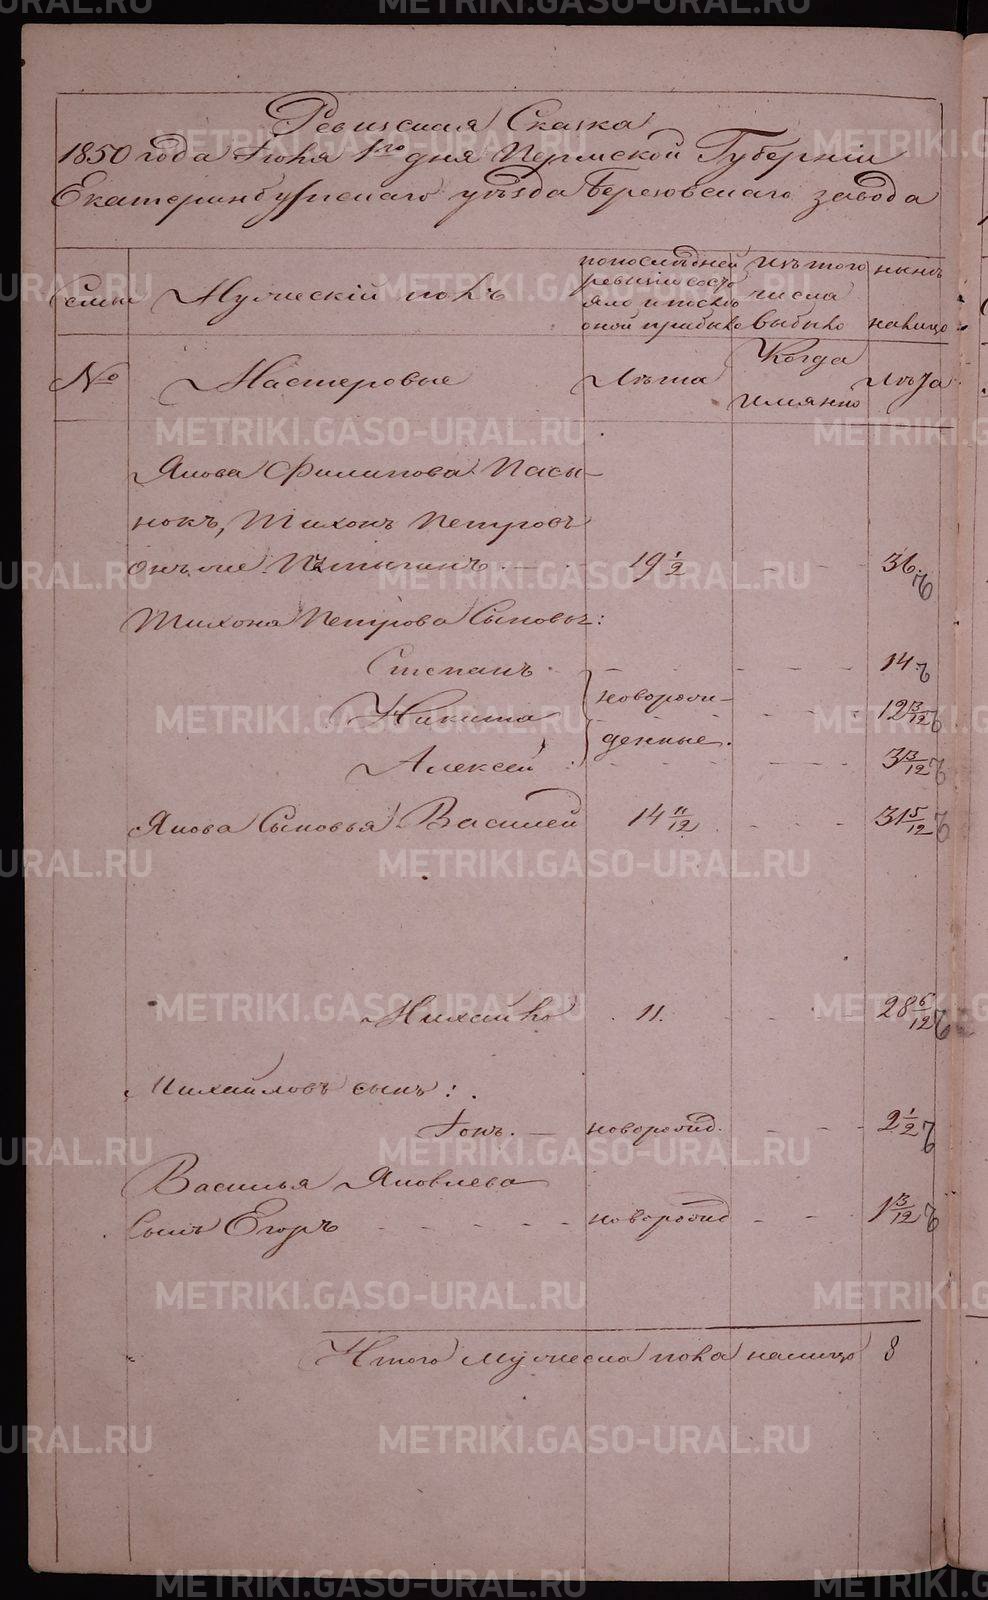 Ревизская Сказка
1850 года Іюня 1го дня Пермской Губерніи
Екатеринбургскаго уѣзда Березовскаго завода
Семьи
Мужескій полъ
по последней ревизіи состояло и после оной прибыло
Изъ того числа выбыло
нынѣ налицо
№
Мастеровые
Лѣта
Когда имянно
Лѣта
Якова Филипова Пасы-
нокъ, Тихонъ Петровъ
онъ же 19 1/2 36.
Тихона Петрова Сыновья:
Степанъ 14
Никита 12 3/12
новорож-
денные.
Алексей 3 3/12
Якова Сыновья Василей 14 11/12 31 5/12
Михайло 11. 28 6/12
Михайловъ сынъ:
Іонъ. новорожд. 2 1/2
Василья Яковлева
Сынъ Егоръ новорожд 1 3/12
Итого мужеска пола налицо 8
METRIKI.GASO-URAL.RU